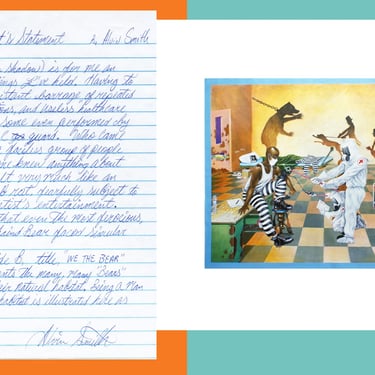 t's Statement By Alvin Smith
shadow) is for me an
ings I've held. Having to
istent barrage of repeated
ons, and useless healthcare
some even performed by
guard. Who came
docile group of people
one knew anything about
lt very much like an
d most fearfully subject to
ist's entertainment.
that even the most ferocious,
Bear faced similar
title, "WE THE BEAR"
ate the many, many "Bears"
eir natural habitat, being a man
abitat is illustrated here as
Alvin Smith